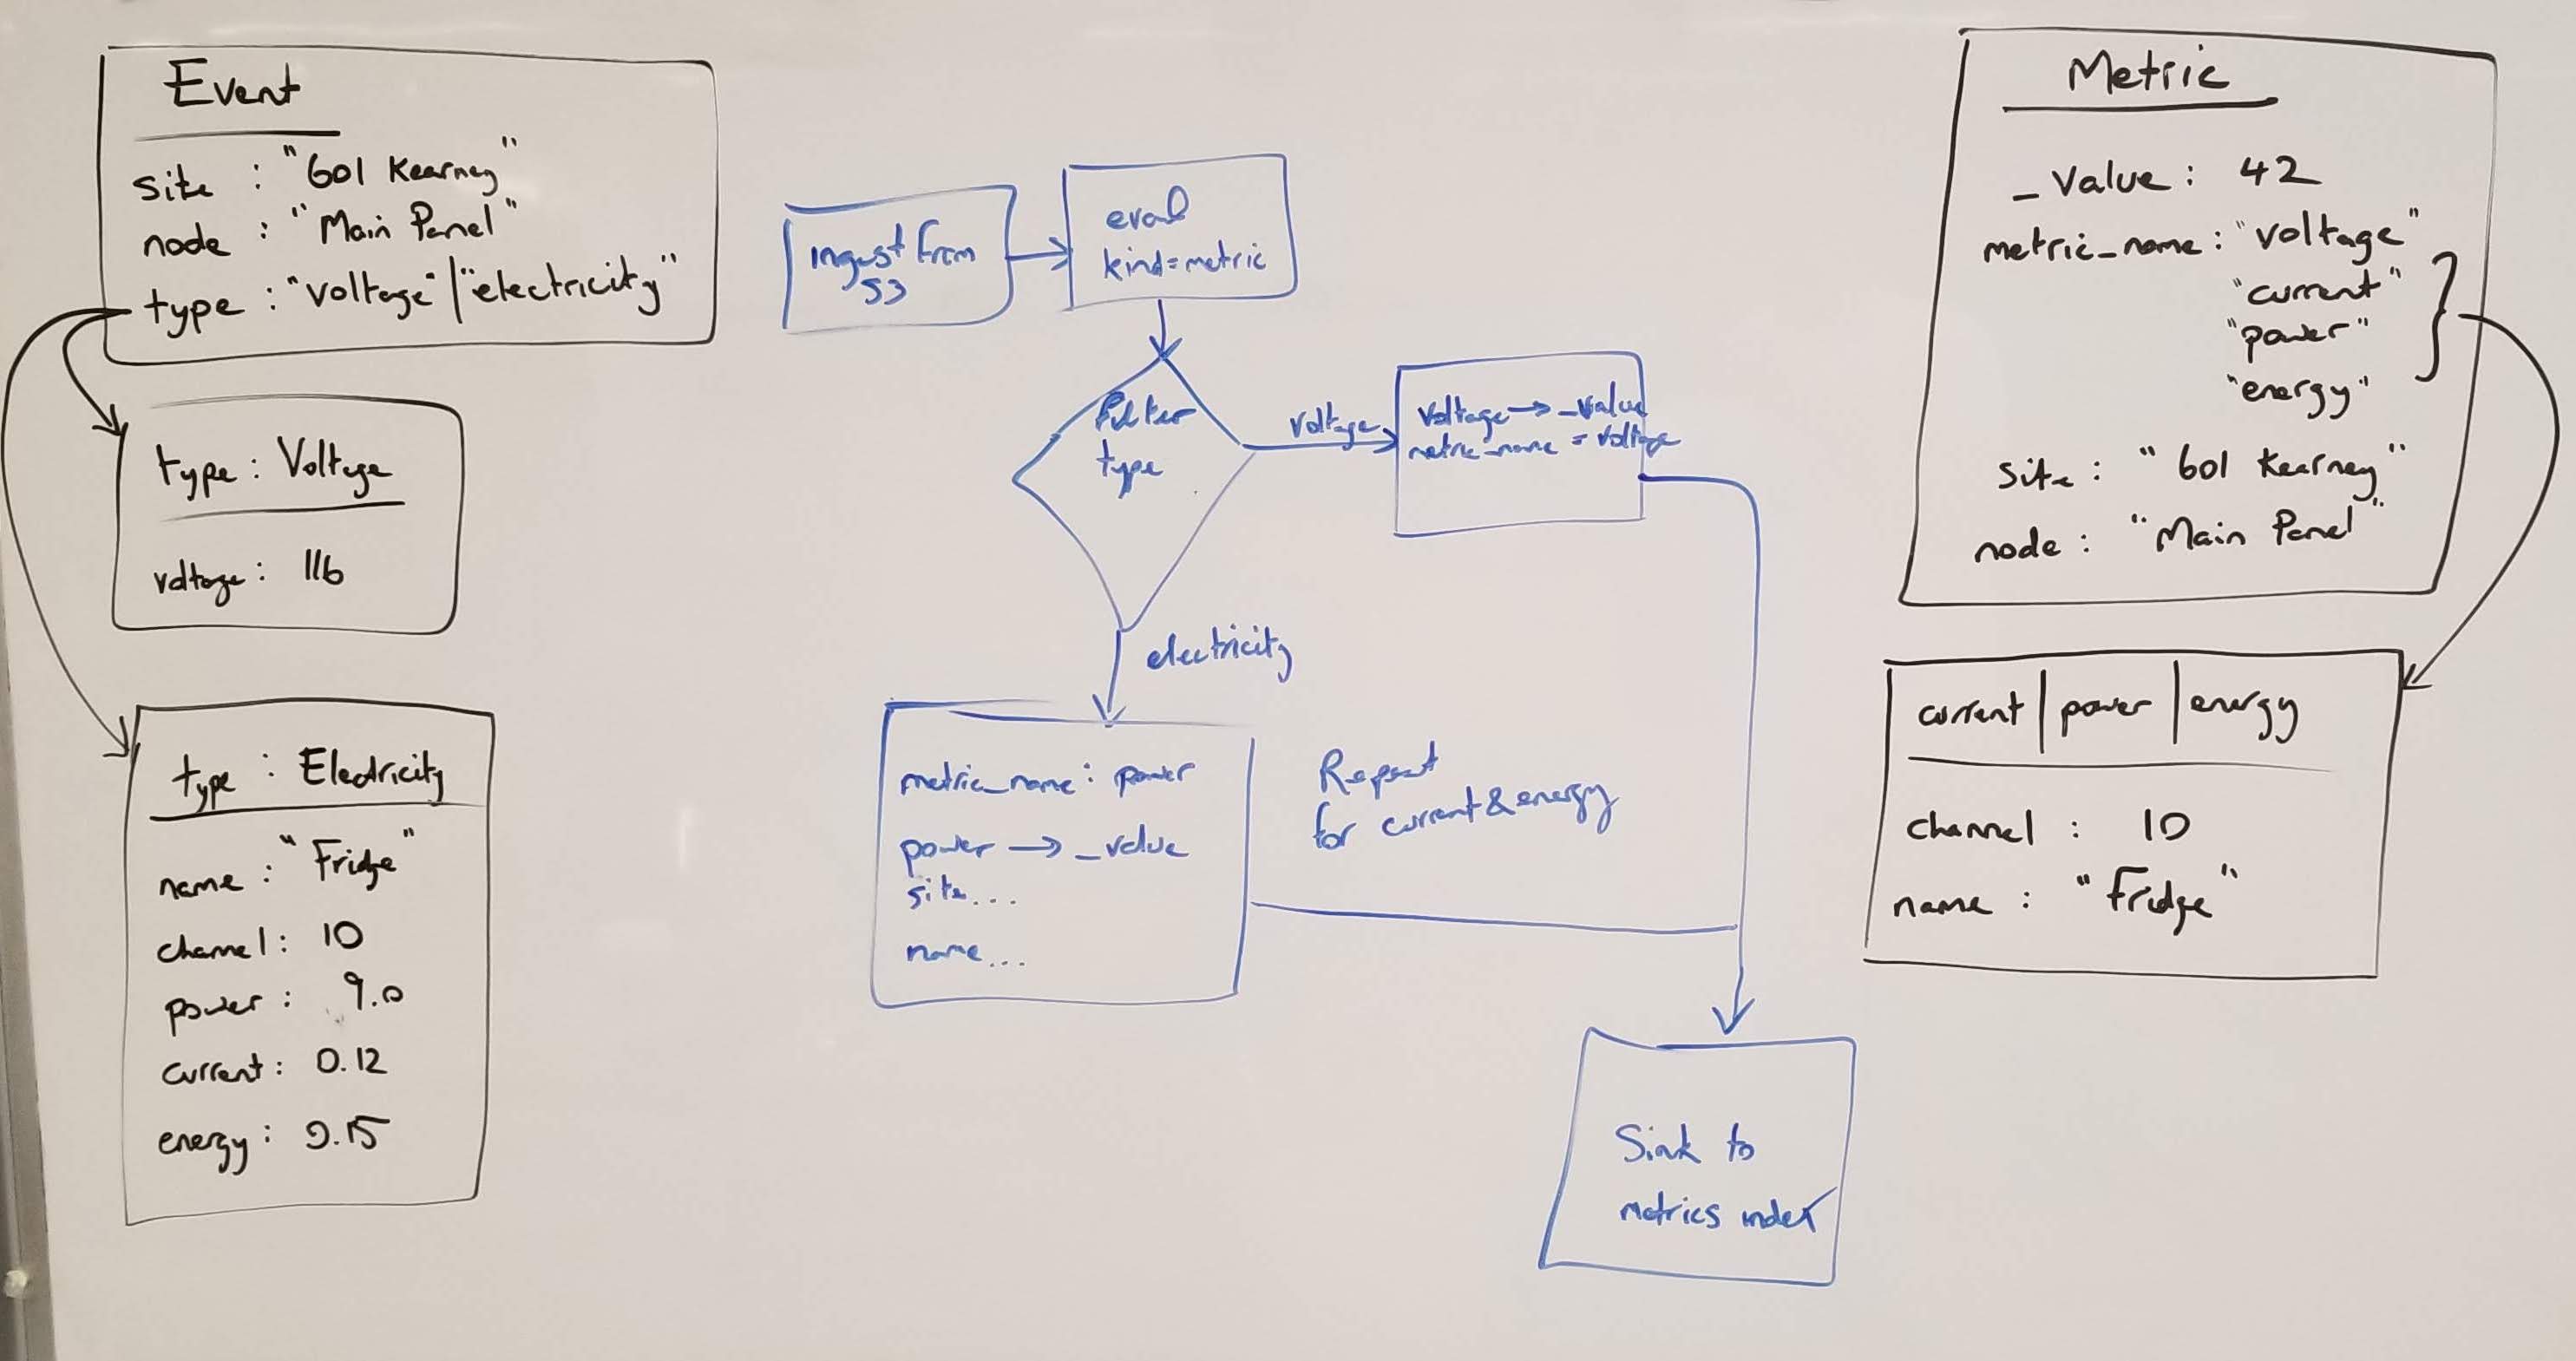 Event
site : "601 Kearney"
node : "Main Panel"
type : "voltage" | "electricity"
type : Voltage
voltage : 116
type : Electricity
name : "Fridge"
channel : 10
power : 9.0
current : 0.12
energy : 0.15
Ingest from
S3
eval
kind=metric
Filter
type
voltage
voltage → _value
metric_name = voltage
electricity
metric_name : power
power → _value
site...
name...
Repeat
for current & energy
Sink to
metrics index
Metric
_value : 42
metric_name : "voltage"
"current"
"power"
"energy"
site : "601 Kearney"
node : "Main Panel"
current | power | energy
channel : 10
name : "Fridge"